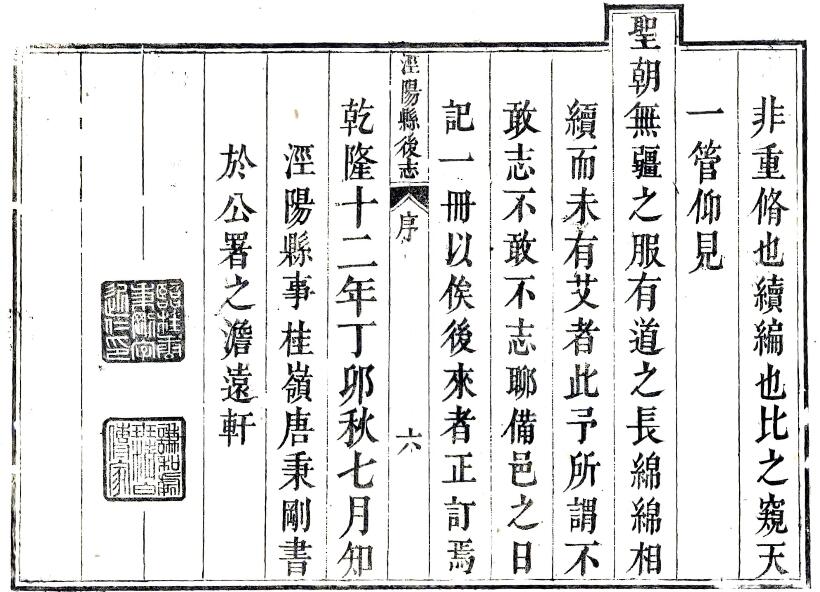 非重脩也續編也比之窺天
一管仰見
聖朝無疆之服有道之長綿綿相
續而未有艾者此予所謂不
敢志不敢不志聊備邑之日
記一冊以俟後來者正訂焉
涇陽縣後志 序 六
乾隆十二年丁卯秋七月知
涇陽縣事桂嶺唐秉剛書
於公署之澹遠軒